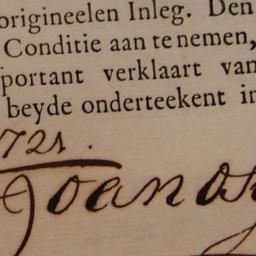 origineelen Inleg. Den
Conditie aan te nemen,
portant verklaart van
beyde onderteekent in
1721.